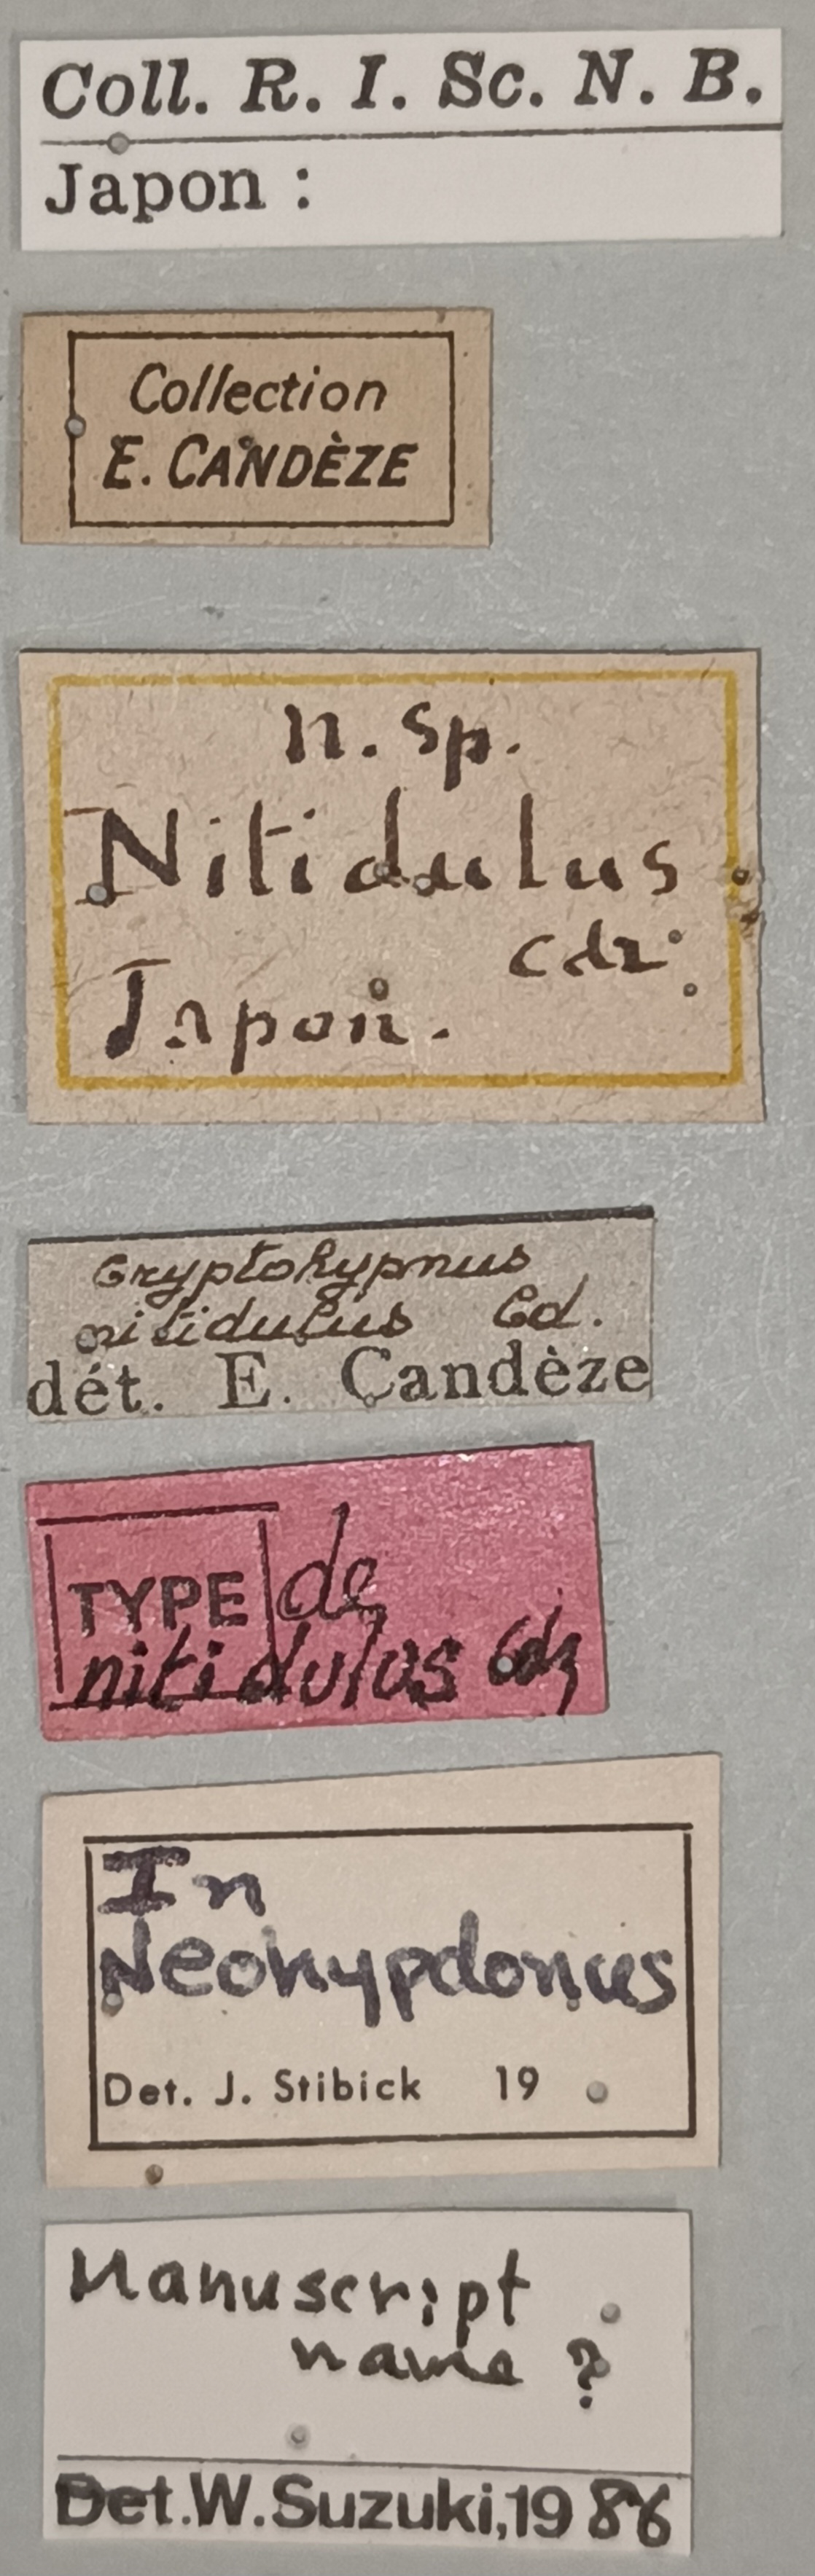 Coll. R. I. Sc. N. B.
Japon :
Collection
E. CANDÈZE
n. sp.
Nitidulus
cdz.
Japon.
Cryptohypnus
nitidulus Cd.
dét. E. Candèze
TYPE de
nitidulus Cdz
In
Neohypdonus
Det. J. Stibick 19
Manuscript
name ?
Det.W.Suzuki,1986